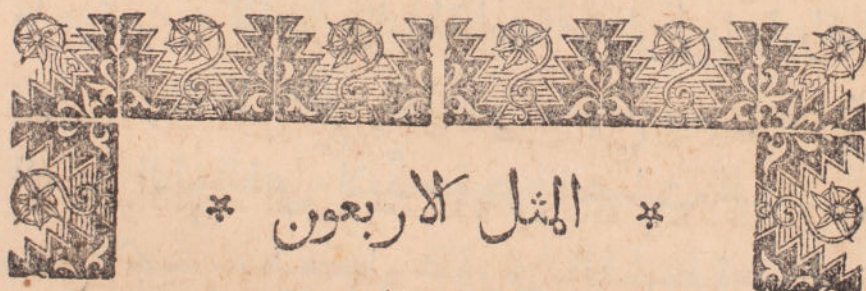 * المثل الاربعون *